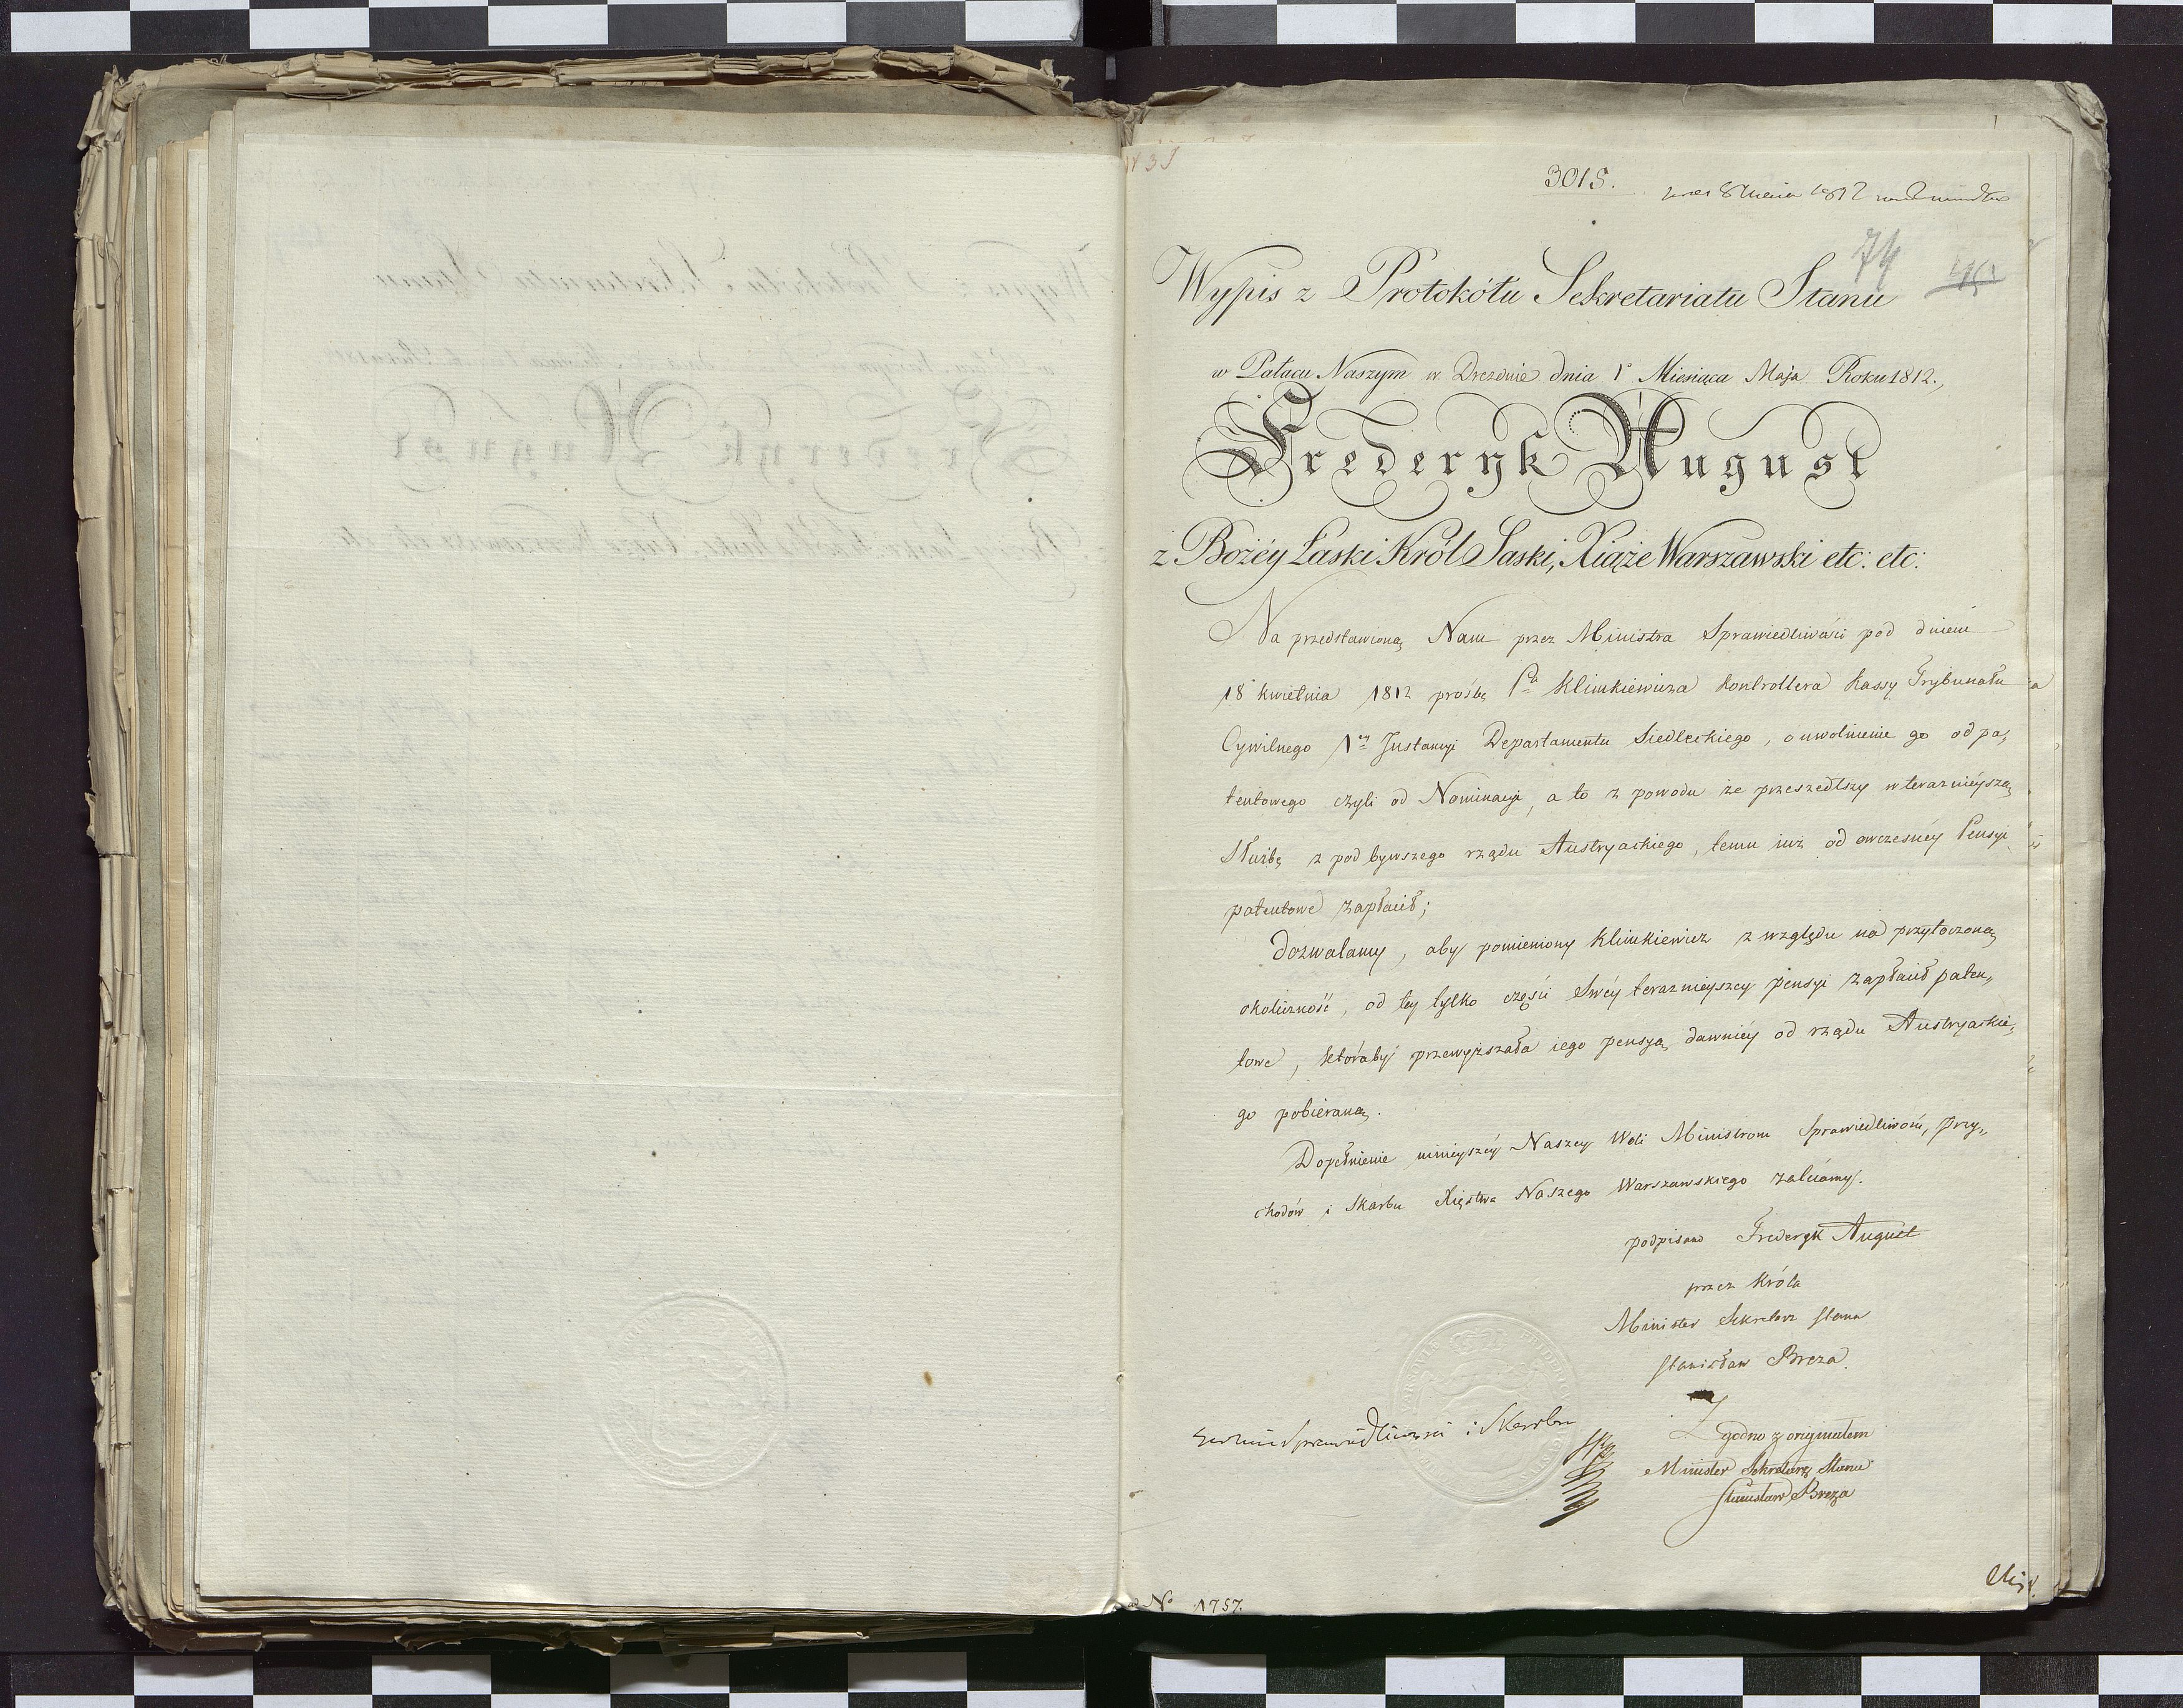 3015.
74
Wypis z Protokółu Sekretariatu Stanu
w Pałacu Naszym w Dreznie dnia 1° Miesiąca Maja Roku 1812.
Frederyk August
z Bożéy Łaski Król Saski, Xiąże Warszawski etc: etc:
Na przedstawioną Nam przez Ministra Sprawiedliwości pod dniem
18 kwietnia 1812 prośbę Pa Klimkiewicza kontrollera kassy Trybunału
Cywilnego 1éy Instancyi Departamentu Siedleckiego, o uwolnienie go od pa„
tentowego czyli od Nominacyi, a to z powodu że przeszedłszy w teraznieyszą
Służbę z pod bywszego rządu Austryackiego, temu iuż od owczesnéy Pensyi
patentowe zapłacił;
Dozwalamy, aby pomieniony Klimkiewicz z względu na przytoczoną
okoliczność, od tey tylko części Swéy teraznieyszey pensyi zapłacił paten„
towe, któraby przewyższała iego pensyą dawniéy od rządu Austryackie„
go pobieraną.
Dopełnienie ninieyszéy Naszey Woli Ministrom Sprawiedliwości, Przy„
chodów i Skarbu Xięstwa Naszego Warszawskiego zalecamy.
podpisano Frederyk August
przez Króla
Minister Sekretarz Stanu
Stanisław Breza.
Zgodno z originałem
Minister Sekretarz Stanu
Stanisław Breza
Sprawiedliwości i Skarbu
No 1757.